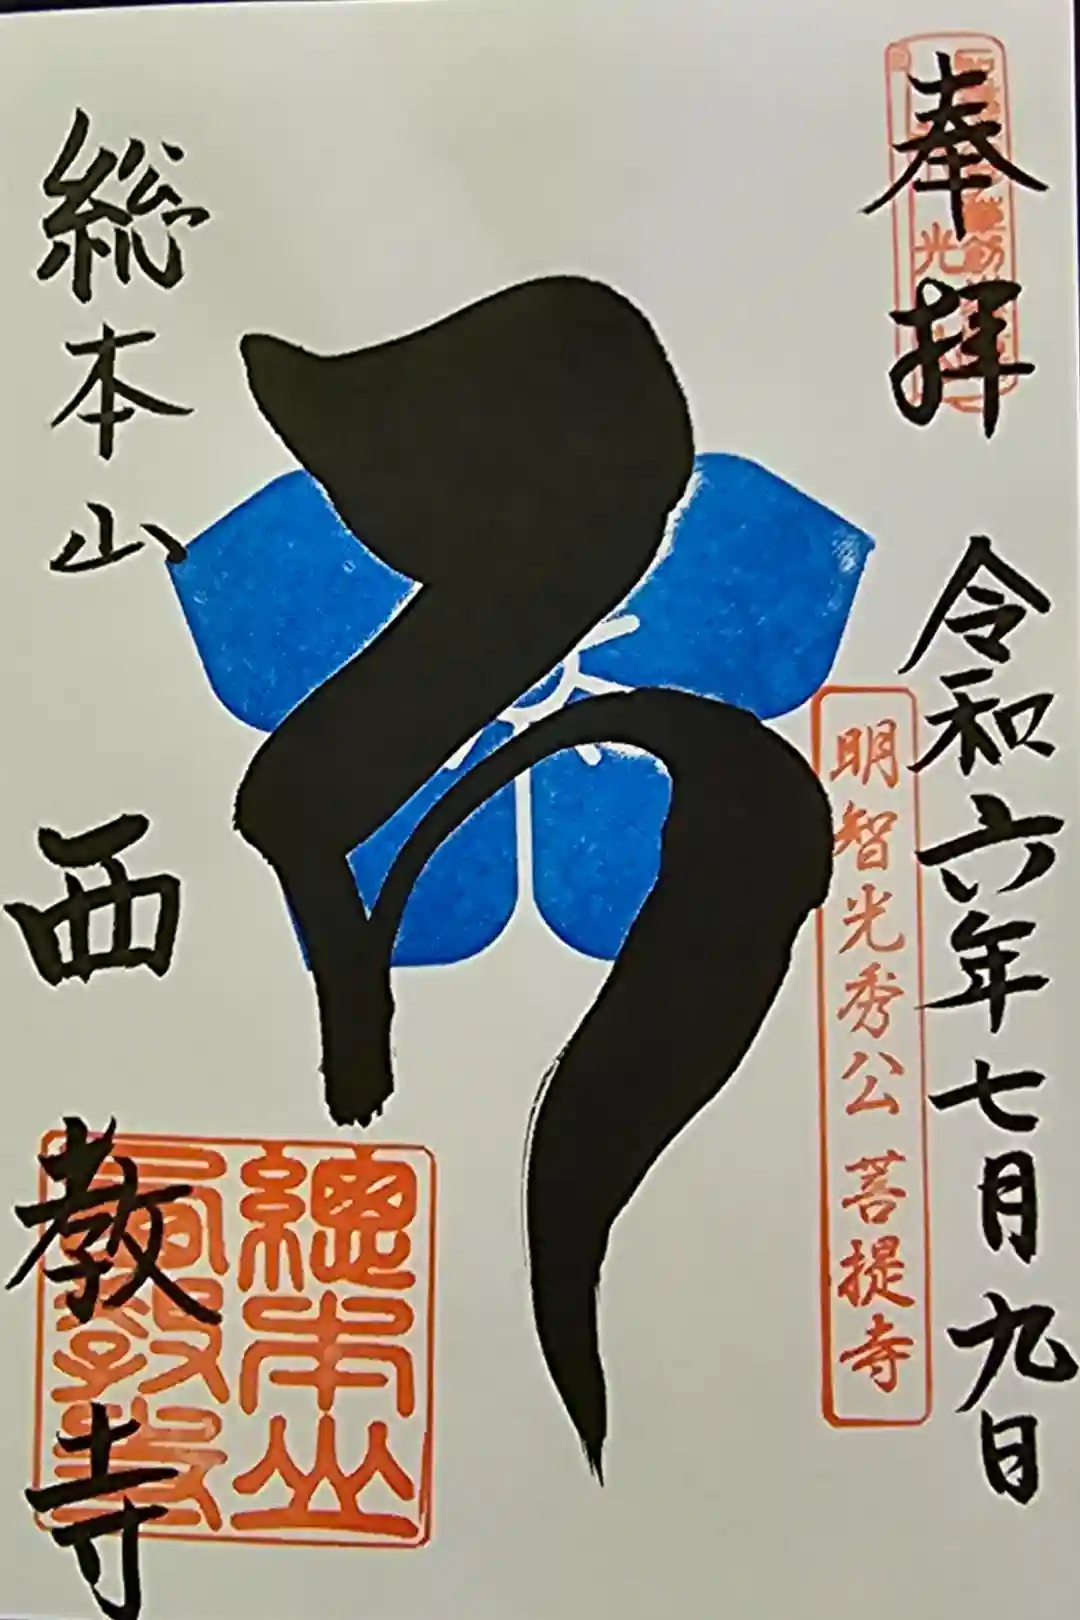 奉拝
令和六年七月九日
明智光秀公 菩提寺
総本山
西教寺
總本山